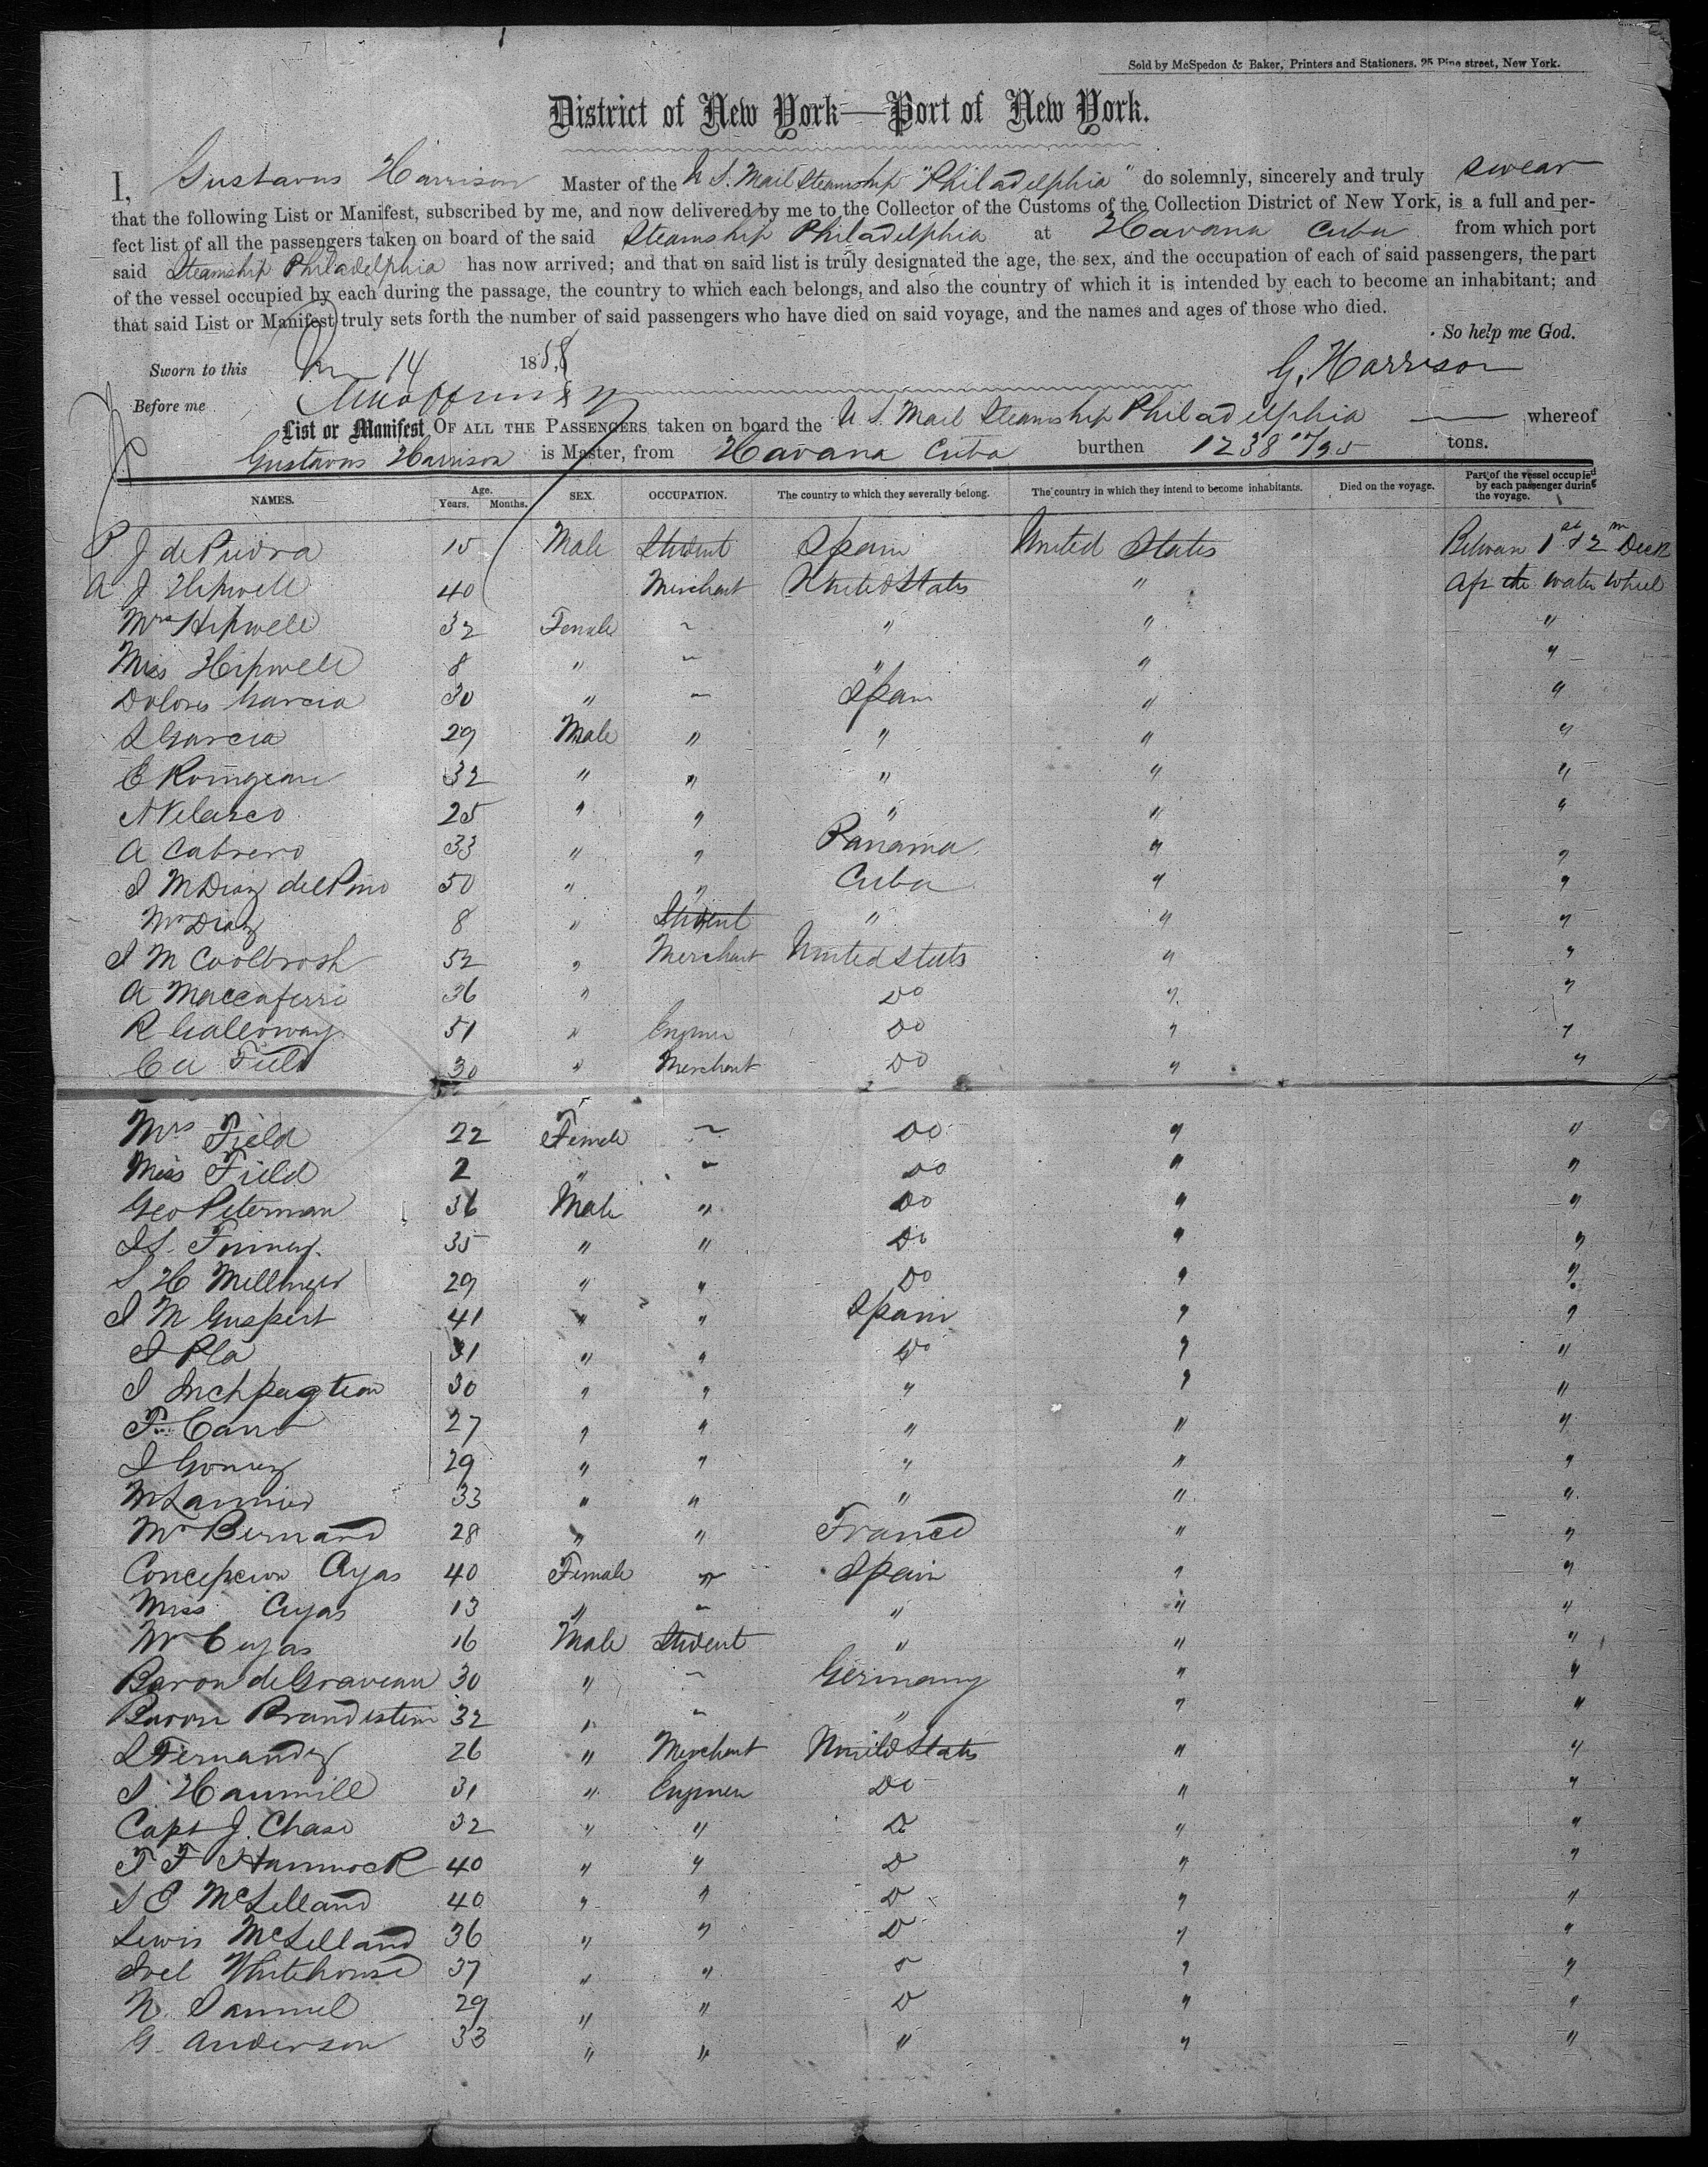 Sold by McSpedon & Baker, Printers and Stationers. 25 Pine street, New York.
District of New York—Port of New York.
I, Gustavus Harrison Master of the U S. Mail Steamship "Philadelphia" do solemnly, sincerely and truly swear
that the following List or Manifest, subscribed by me, and now delivered by me to the Collector of the Customs of the Collection District of New York, is a full and per-
fect list of all the passengers taken on board of the said Steamship Philadelphia at Havana Cuba from which port
said Steamship Philadelphia has now arrived; and that on said list is truly designated the age, the sex, and the occupation of each of said passengers, the part
of the vessel occupied by each during the passage, the country to which each belongs, and also the country of which it is intended by each to become an inhabitant; and
that said List or Manifest truly sets forth the number of said passengers who have died on said voyage, and the names and ages of those who died.
So help me God.
Sworn to this 14 1858
G. Harrison
Before me
List or Manifest OF ALL THE PASSENGERS taken on board the U S. Mail Steamship Philadelphia whereof
Gustavus Harrison is Master, from Havana Cuba burthen 1238 /95 tons.
NAMES. Age. Years. Months. SEX. OCCUPATION. The country to which they severally belong. The country in which they intend to become inhabitants. Died on the voyage. Part of the vessel occupied by each passenger during the voyage.
P J de Piedra 15 Male Student Spain United States Between 1st & 2 Deck
A J Hipwell 40 Merchant United States " Aft the water wheel
Mrs Hipwell 32 Female " " "
Miss Hipwell 8 " " " "
Dolores Garcia 30 " Spain " "
Garcia 29 Male " " " "
E 32 " " " " "
A Velasco 25 " " " " "
A Cabrero 33 " " Panama " "
M Diaz del Pino 50 " " Cuba " "
Mr Diaz 8 " Student " " "
J M Coolbrosh 52 " Merchant United States " "
A Maccaferri 36 " Do " "
R Galloway 51 " Do " "
C A Field 30 " Merchant Do " "
Mrs Field 22 Female Do " "
Miss Field 2 " Do " "
Geo Peterman 36 Male " Do " "
35 " " Do " "
H 29 " " Do " "
J M Guspert 41 " " Spain " "
J Pla 31 " " Do " "
30 " " " " "
F Cano 27 " " " " "
Gomez 29 " " " " "
33 " " " " "
Mr Bernard 28 " " France " "
Concepcion Cuyas 40 Female " Spain " "
Miss Cuyas 13 " " " "
Mr Cuyas 16 Male Student " " "
Baron de Graveau 30 " Germany " "
Baron Brandestein 32 " " " "
Fernandez 26 " Merchant United States " "
Hammill 31 " Do " "
Capt J. Chase 32 " " D " "
T F Hammock 40 " " D " "
McLelland 40 " " D " "
Lewis McLelland 36 " " D " "
Joel Whitehouse 37 " " " "
N. Samuel 29 " " D " "
G. Anderson 33 " " " " "